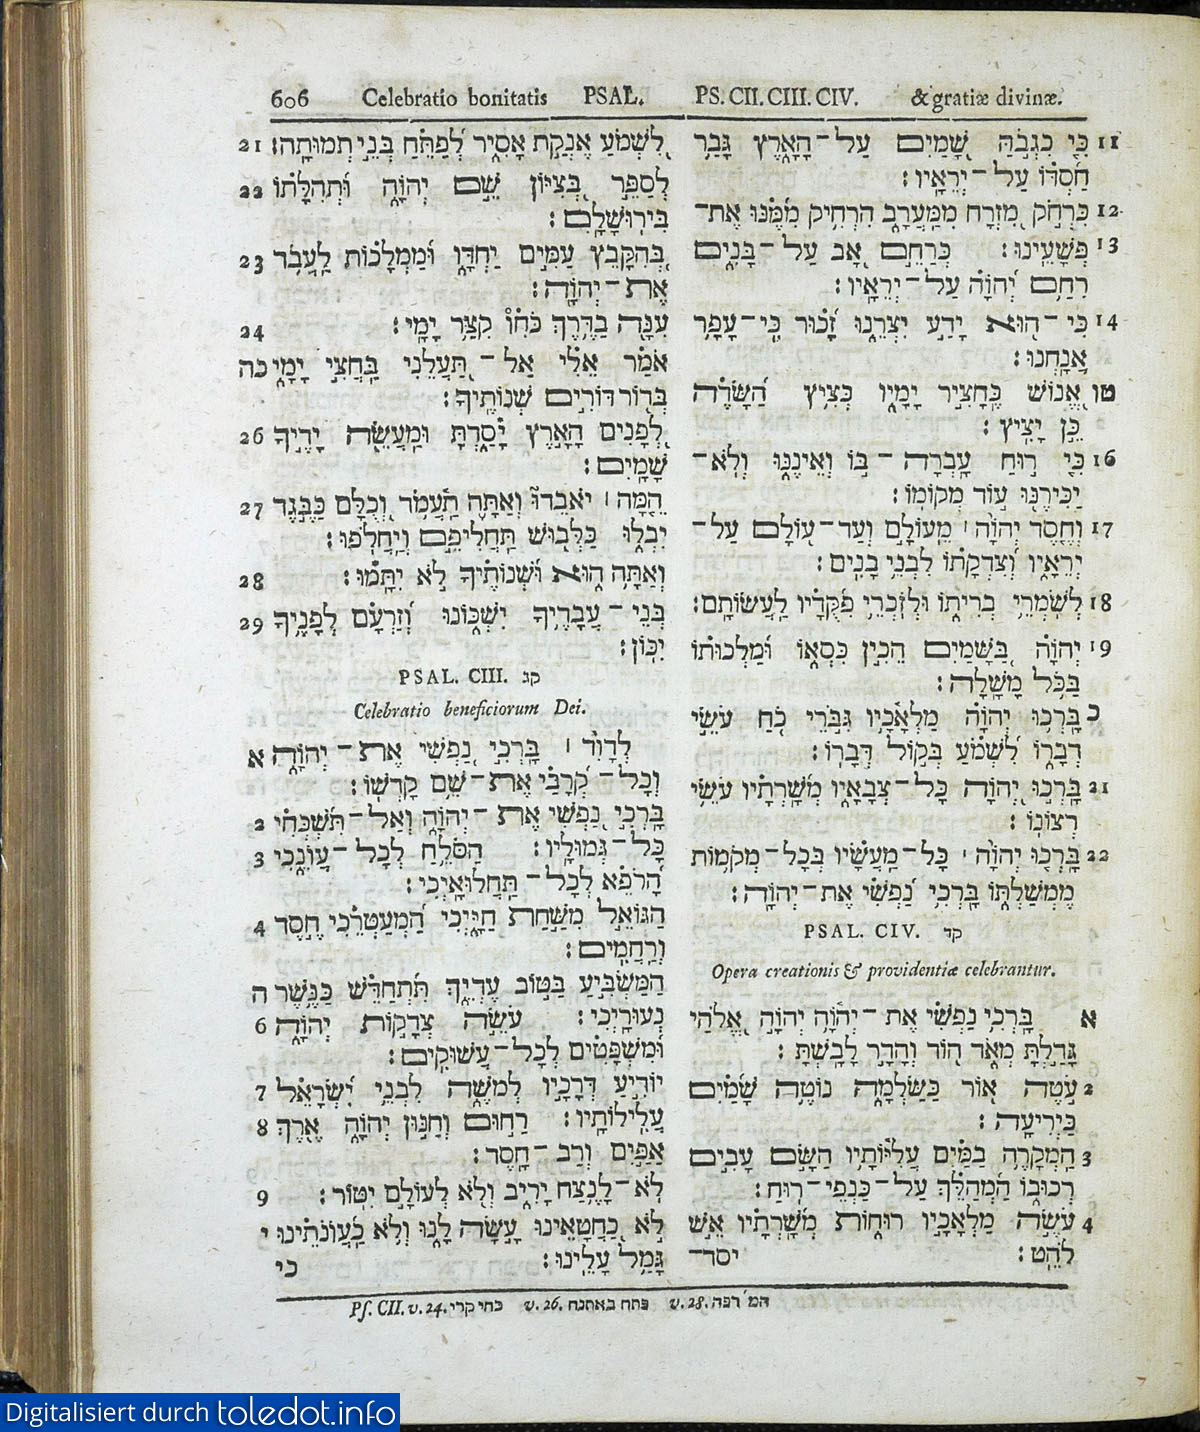 606 Celebratio bonitatis PSAL. PS. CII. CIII. CIV. & gratiæ divinæ.
לִשְׁמֹעַ אֶנְקַת אָסִיר לְפַתֵּחַ בְּנֵי תְמוּתָה׃ 21
לְסַפֵּר בְּצִיּוֹן שֵׁם יְהוָֹה וּתְהִלָּתוֹ 22
בִּירוּשָׁלִָם׃
בְּהִקָּבֵץ עַמִּים יַחְדָּו וּמַמְלָכוֹת לַעֲבֹד 23
אֶת־יְהוָֹה׃
עִנָּה בַדֶּרֶךְ כֹּחִוֹ קִצַּר יָמָי׃ 24
אֹמַר אֵלִי אַל־תַּעֲלֵנִי בַּחֲצִי יָמָי כה
בְּדוֹר דּוֹרִים שְׁנוֹתֶיךָ׃
לְפָנִים הָאָרֶץ יָסַדְתָּ וּמַעֲשֵׂה יָדֶיךָ 26
שָׁמָיִם׃
הֵמָּה ׀ יֹאבֵדוּ וְאַתָּה תַעֲמֹד וְכֻלָּם כַּבֶּגֶד 27
יִבְלוּ כַּלְּבוּשׁ תַּחֲלִיפֵם וְיַחֲלֹפוּ׃
וְאַתָּה הוּא וּשְׁנוֹתֶיךָ לֹא יִתָּמּוּ׃ 28
בְּנֵי־עֲבָדֶיךָ יִשְׁכּוֹנוּ וְזַרְעָם לְפָנֶיךָ 29
יִכּוֹן׃
PSAL. CIII. קג
Celebratio beneficiorum Dei.
לְדָוִד ׀ בָּרְכִי נַפְשִׁי אֶת־יְהוָֹה א
וְכָל־קְרָבַי אֶת־שֵׁם קָדְשׁוֹ׃
בָּרְכִי נַפְשִׁי אֶת־יְהוָֹה וְאַל־תִּשְׁכְּחִי 2
כָּל־גְּמוּלָיו׃ הַסֹּלֵחַ לְכָל־עֲוֹנֵכִי 3
הָרֹפֵא לְכָל־תַּחֲלוּאָיְכִי׃
הַגּוֹאֵל מִשַּׁחַת חַיָּיְכִי הַמְעַטְּרֵכִי חֶסֶד 4
וְרַחֲמִים׃
הַמַּשְׂבִּיעַ בַּטּוֹב עֶדְיֵךְ תִּתְחַדֵּשׁ כַּנֶּשֶׁר ה
נְעוּרָיְכִי׃ עֹשֵׂה צְדָקוֹת יְהוָֹה 6
וּמִשְׁפָּטִים לְכָל־עֲשׁוּקִים׃
יוֹדִיעַ דְּרָכָיו לְמֹשֶׁה לִבְנֵי יִשְׂרָאֵל 7
עֲלִילוֹתָיו׃ רַחוּם וְחַנּוּן יְהוָֹה אֶרֶךְ 8
אַפַּיִם וְרַב־חָסֶד׃
לֹא־לָנֶצַח יָרִיב וְלֹא לְעוֹלָם יִטּוֹר׃ 9
לֹא כַחֲטָאֵינוּ עָשָׂה לָנוּ וְלֹא כַעֲוֹנֹתֵינוּ י
גָּמַל עָלֵינוּ׃
כי
11 כִּי כִגְבֹהַּ שָׁמַיִם עַל־הָאָרֶץ גָּבַר
חַסְדּוֹ עַל־יְרֵאָיו׃
12 כִּרְחֹק מִזְרָח מִמַּעֲרָב הִרְחִיק מִמֶּנּוּ אֶת־
13 פְּשָׁעֵינוּ׃ כְּרַחֵם אָב עַל־בָּנִים
רִחַם יְהוָֹה עַל־יְרֵאָיו׃
14 כִּי־הוּא יָדַע יִצְרֵנוּ זָכוּר כִּי־עָפָר
אֲנָחְנוּ׃
טו אֱנוֹשׁ כֶּחָצִיר יָמָיו כְּצִיץ הַשָּׂדֶה
כֵּן יָצִיץ׃
16 כִּי רוּחַ עָבְרָה־בּוֹ וְאֵינֶנּוּ וְלֹא־
יַכִּירֶנּוּ עוֹד מְקוֹמוֹ׃
17 וְחֶסֶד יְהוָֹה ׀ מֵעוֹלָם וְעַד־עוֹלָם עַל־
יְרֵאָיו וְצִדְקָתוֹ לִבְנֵי בָנִים׃
18 לְשֹׁמְרֵי בְרִיתוֹ וּלְזֹכְרֵי פִקֻּדָיו לַעֲשׂוֹתָם׃
19 יְהוָֹה בַּשָּׁמַיִם הֵכִין כִּסְאוֹ וּמַלְכוּתוֹ
בַּכֹּל מָשָׁלָה׃
כ בָּרְכוּ יְהוָֹה מַלְאָכָיו גִּבֹּרֵי כֹחַ עֹשֵׂי
דְבָרוֹ לִשְׁמֹעַ בְּקוֹל דְּבָרוֹ׃
21 בָּרְכוּ יְהוָֹה כָּל־צְבָאָיו מְשָׁרְתָיו עֹשֵׂי
רְצוֹנוֹ׃
22 בָּרְכוּ יְהוָֹה ׀ כָּל־מַעֲשָׂיו בְּכָל־מְקֹמוֹת
מֶמְשַׁלְתּוֹ בָּרְכִי נַפְשִׁי אֶת־יְהוָֹה׃
PSAL. CIV. קד
Opera creationis & providentiæ celebrantur.
א בָּרְכִי נַפְשִׁי אֶת־יְהוָֹה יְהוָֹה אֱלֹהַי
גָּדַלְתָּ מְאֹד הוֹד וְהָדָר לָבָשְׁתָּ׃
2 עֹטֶה אוֹר כַּשַּׂלְמָה נוֹטֶה שָׁמַיִם
כַּיְרִיעָה׃
3 הַמְקָרֶה בַמַּיִם עֲלִיּוֹתָיו הַשָּׂם עָבִים
רְכוּבוֹ הַמְהַלֵּךְ עַל־כַּנְפֵי־רוּחַ׃
4 עֹשֶׂה מַלְאָכָיו רוּחוֹת מְשָׁרְתָיו אֵשׁ
לֹהֵט׃ יסד־
Pſ. CII. v. 24. כחי קרי v. 26. פתח באתנח v. 28. המ׳ רפה
Digitalisiert durch toledot.info